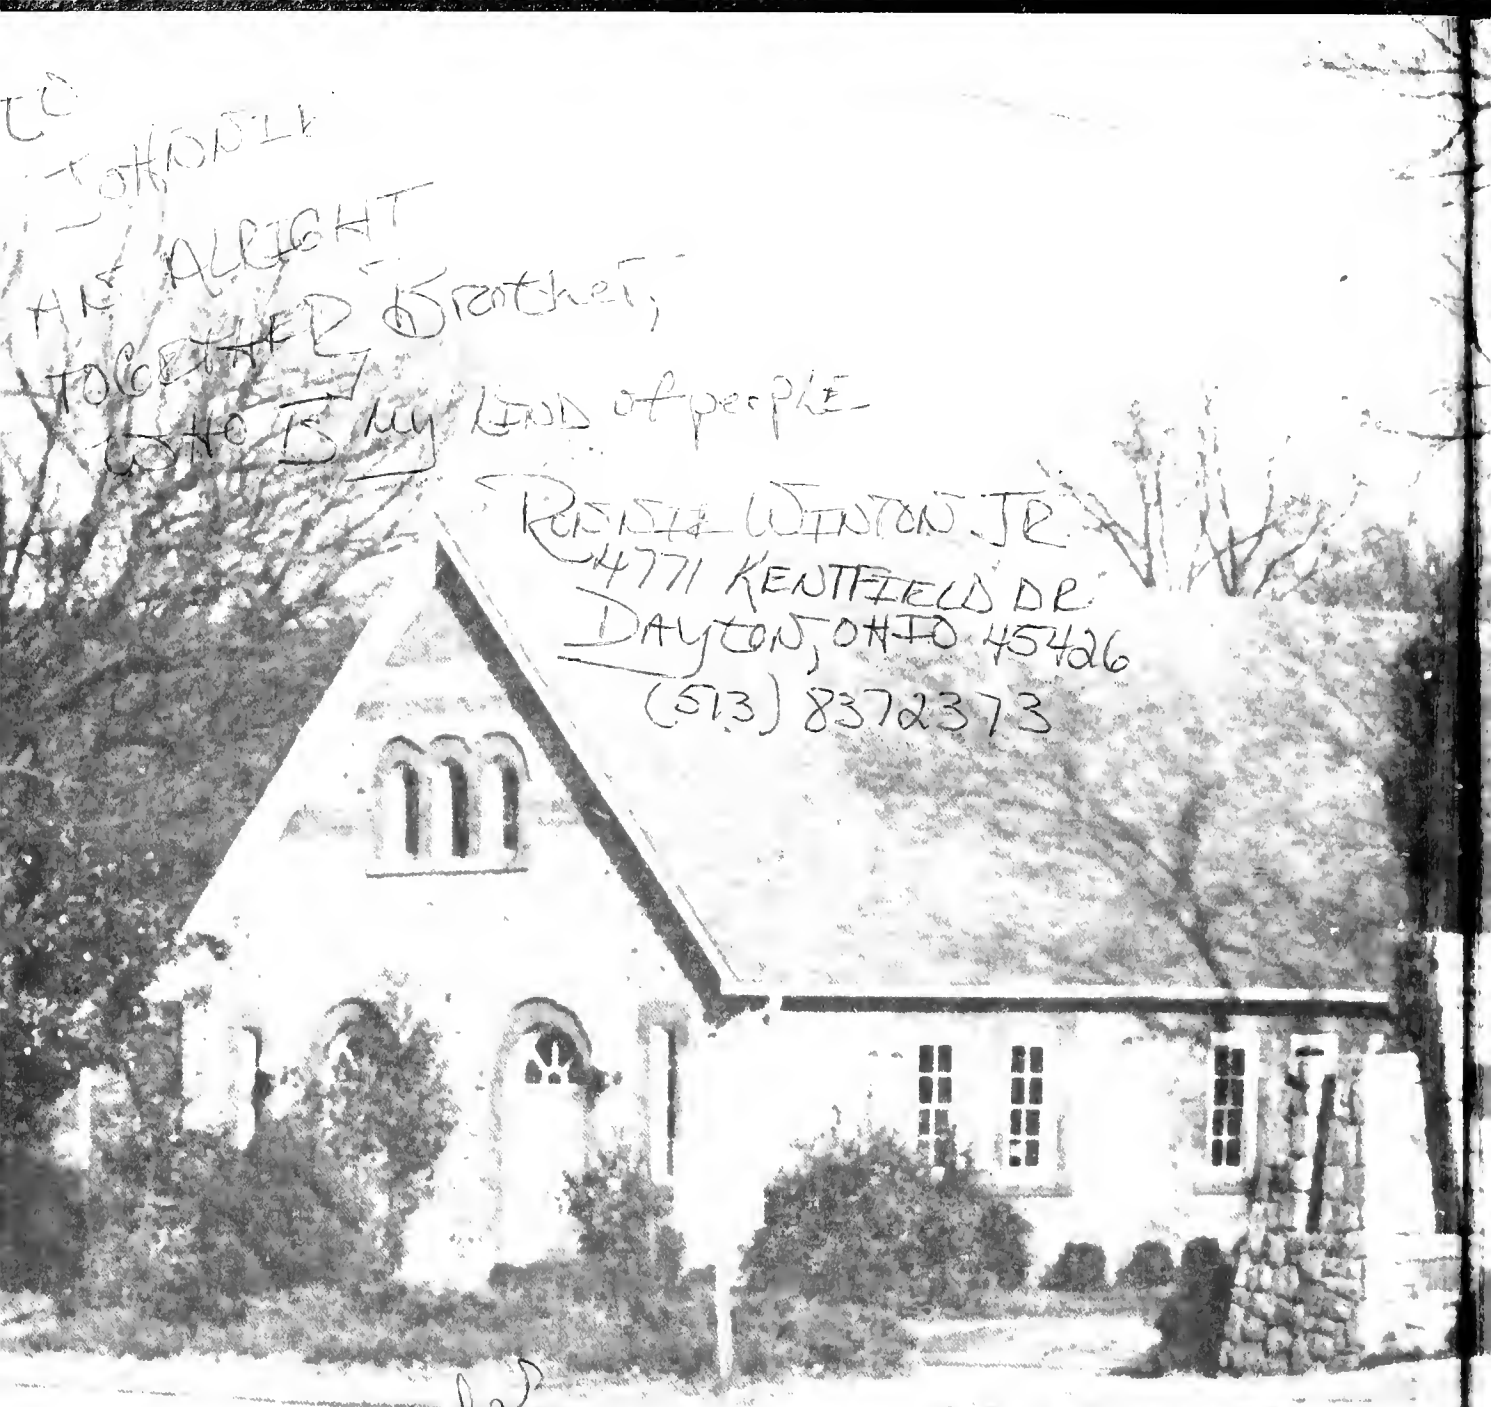 to
JOHNNIE
AN ALRIGHT
TOGETHER Brother,
WHO IS My KIND of people
RONNIE WINTON JR
4771 KENTFIELD DR.
DAytON, OHIO 45426
(513) 8372373